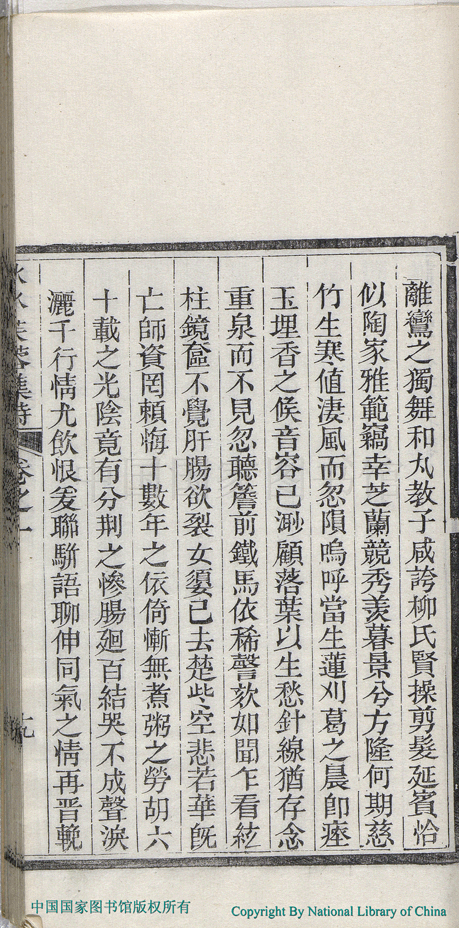 離鸞之獨舞和丸教子咸誇柳氏賢操剪髮延賓恰
似陶家雅範竊幸芝蘭競秀羡暮景兮方隆何期慈
竹生寒值淒風而忽隕嗚呼當生蓮刈葛之晨卽瘞
玉埋香之候音容已渺顧落葉以生愁針線猶存念
重泉而不見忽聽簷前鐵馬依稀謦欬如聞乍看紘
柱鏡奩不覺肝腸欲裂女嬃已去楚些空悲若華旣
亡師資罔賴悔十數年之依倚慚無煮粥之勞胡六
十載之光陰竟有分荆之慘腸廻百結哭不成聲淚
灑千行情尤飲恨爰聯駢語聊伸同氣之情再晋輓
芙蓉集詩 卷之一 十九
中国国家图书馆版权所有
Copyright By National Library of China